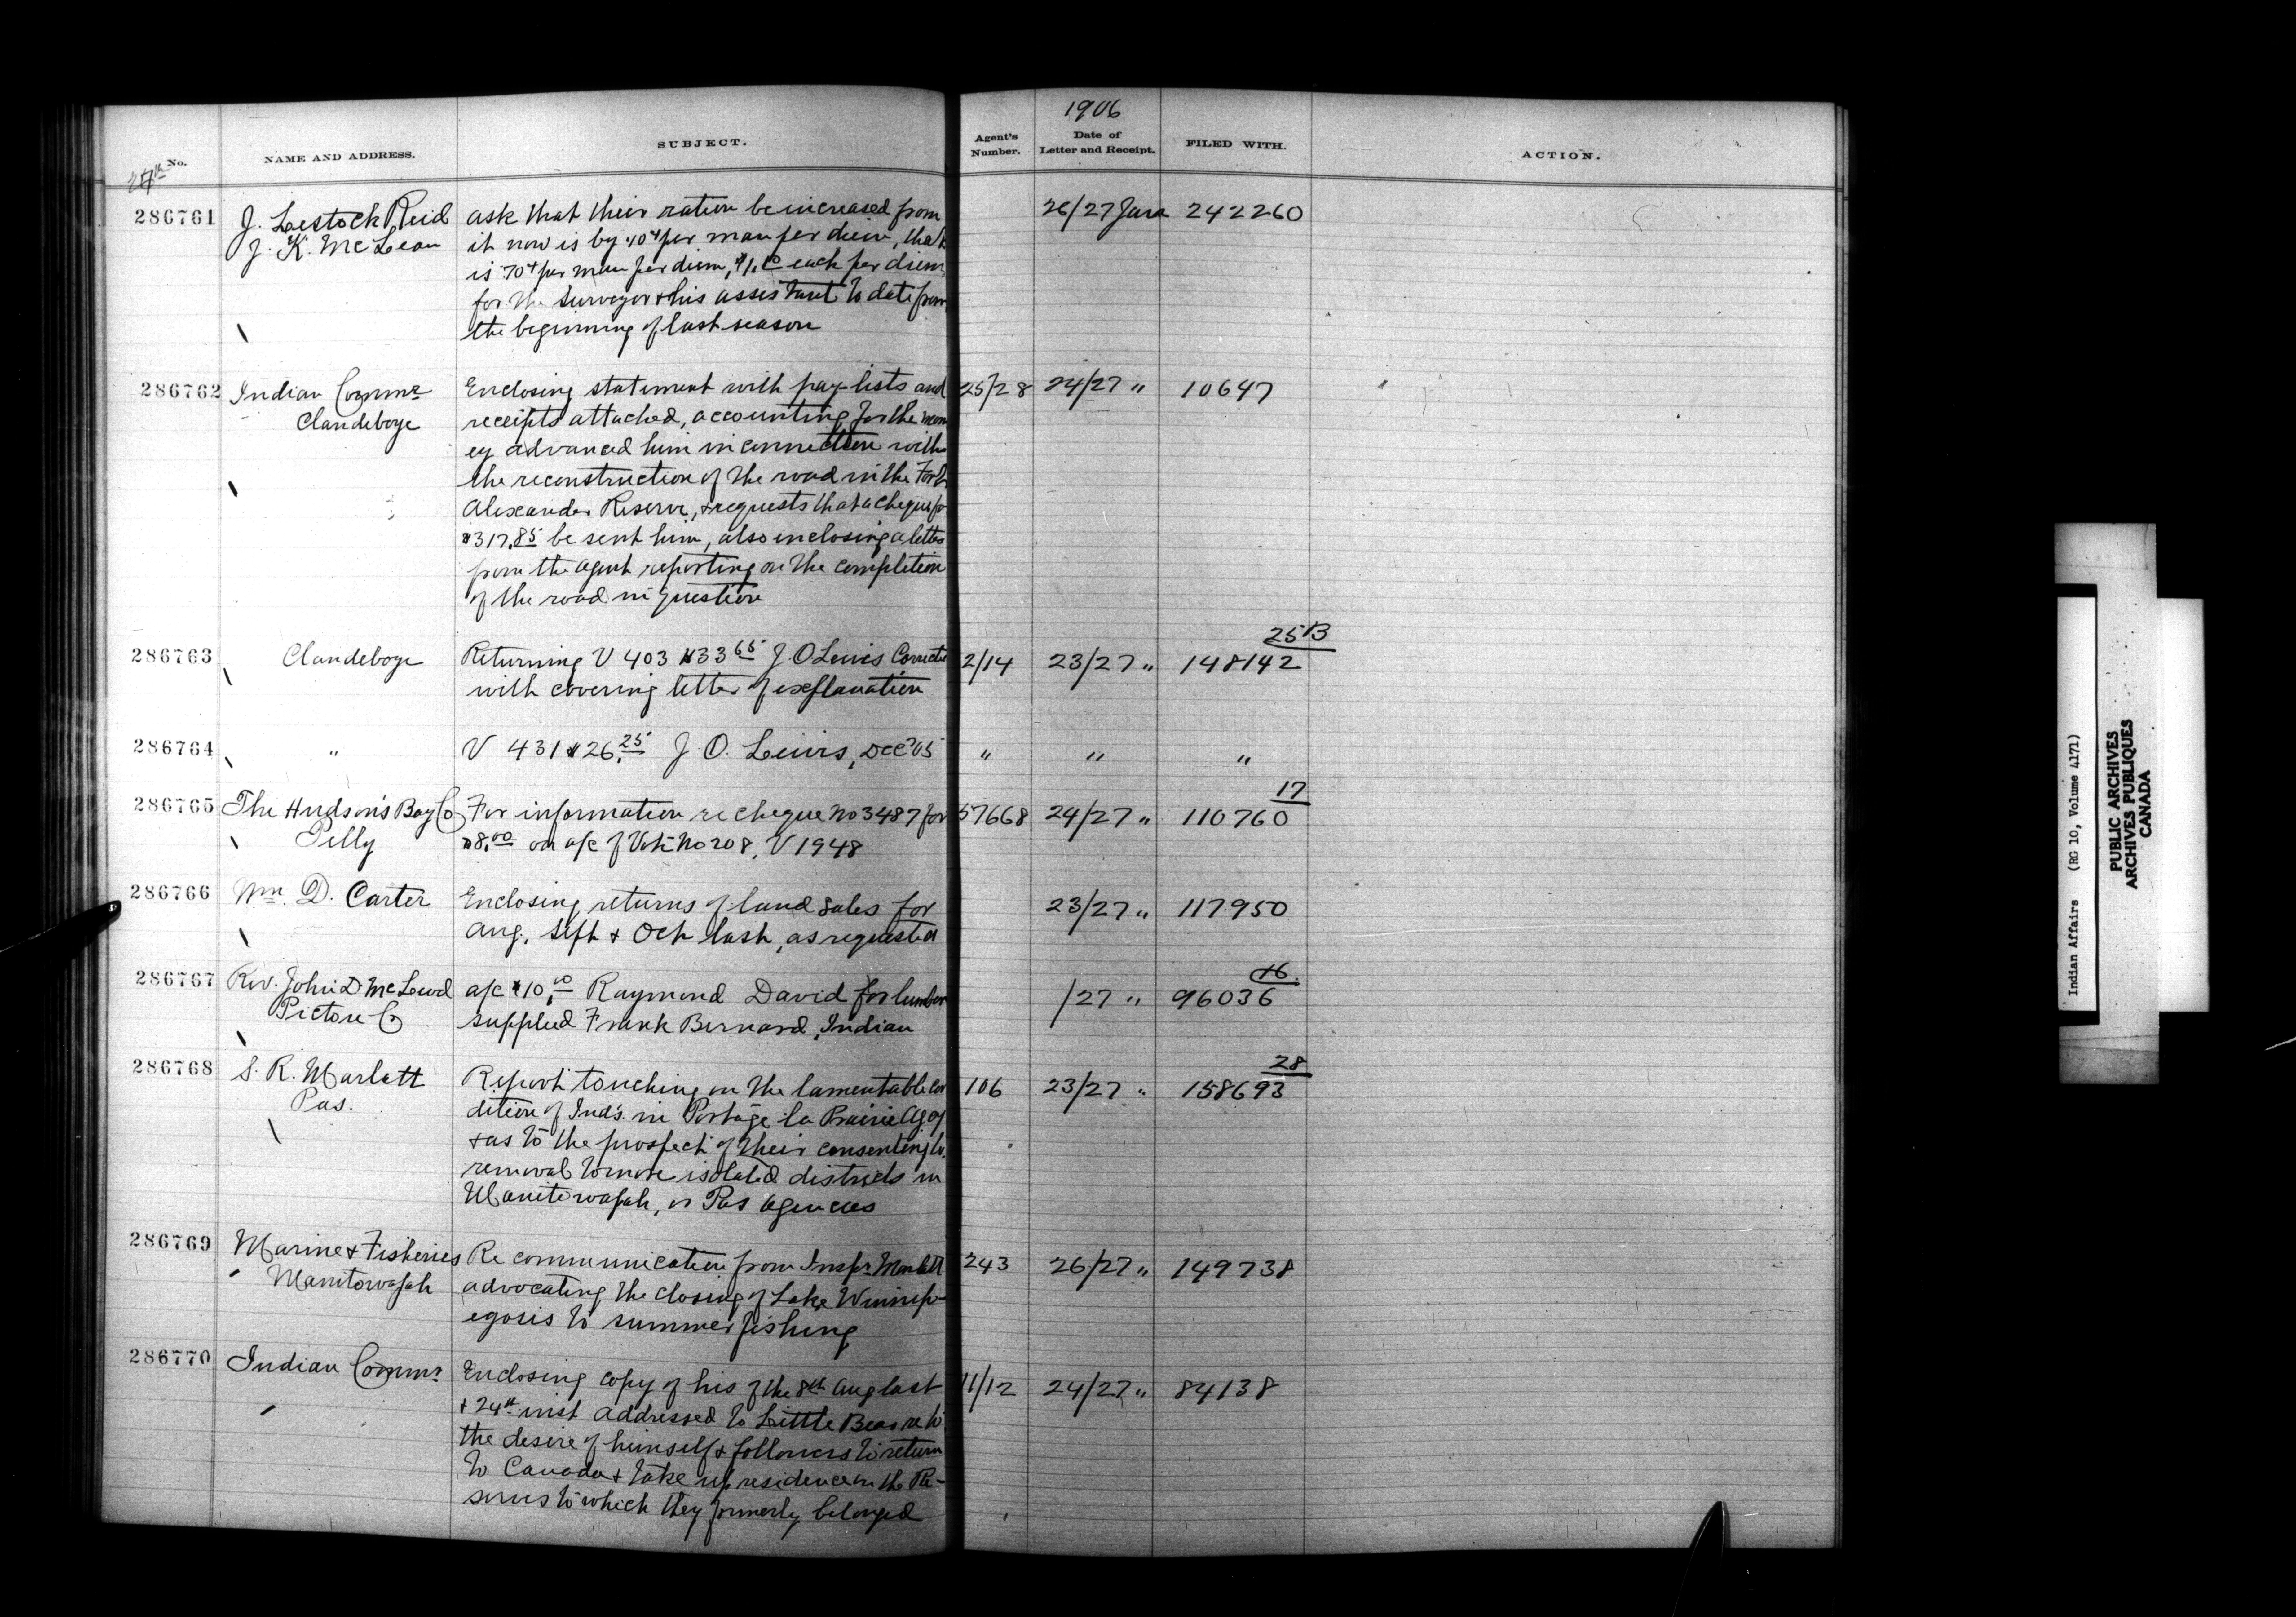 1906
No. NAME AND ADDRESS. SUBJECT. Agent's Number. Date of Letter and Receipt. FILED WITH. ACTION.
27th
286761 J. Lestock Reid ask that their ration be increased from 26/27 Jan 242260
J. K. McLean it now is by 10¢ per man per diem, that
is 70¢ per man per diem, & $1.00 each per diem,
for the surveyor & his assistant to date from
the beginning of last season
286762 Indian Commr Enclosing statement with pay lists and 25/28 24/27 " 10647
Clandeboye receipts attached, accounting for the mon
ey advanced him in connection with
the reconstruction of the road in the Fort
Alexander Reserve, & requests that a cheque for
$317.85 be sent him, also enclosing a letter
from the agent reporting on the completion
of the road in question
25B
286763 Clandeboye Returning V 403 $33 65 J. O Lewis Correcte 2/14 23/27 " 148142
with covering letter of explanation
286764 " V 431 $26.25 J. O. Lewis, Dec '05 " " "
17
286765 The Hudson's Bay Co For information re cheque No 3487 for 57668 24/27 " 110760
Pelly $8.00 on a/c of Vote No 208, V 1948
286766 Wm. D. Carter Enclosing returns of land sales for 23/27 " 117950
Aug. Sept & Oct last, as requested
16
286767 Rev. John D McLeod a/c $10.00 Raymond David for lumber /27 " 96036
Pictou Co supplied Frank Bernard, Indian
28
286768 S. R. Marlatt Report touching on the lamentable con 106 23/27 " 158693
Pas. dition of Inds. in Portage la Prairie Agcy
& as to the prospect of their consenting to
removal to more isolated districts in
Manitowapah, or Pas agencies
286769 Marine & Fisheries Re communication from Inspr Marlatt 243 26/27 " 149738
Manitowapah advocating the closing of Lake Winnip-
egosis to summer fishing
286770 Indian Commr Enclosing copy of his of the 8th Aug last 11/12 24/27 " 84138
& 24th inst addressed to Little Bear re to
the desire of himself & followers to return
to Canada & take up residence on the Re-
serves to which they formerly belonged
Indian Affairs (RG 10, Volume 4171)
PUBLIC ARCHIVES
ARCHIVES PUBLIQUES
CANADA